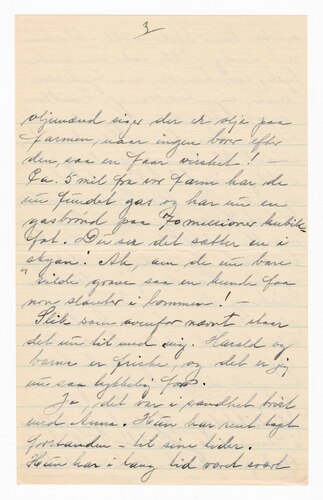 3
oljemænd siger der er olje paa
farmen, naar ingen borer efter
den, saa en faar visshet! -
Ca. 5 mil fra vor farm har de
nu fundet gas og har nu en
gasbrønd paa 70 millioner kubik-
fot. Du ser det sætter en i
skyan! Ak, om de nu bare
vilde grave saa en kunde faa
non slanter i lommen! -
Slik som ovenfor nævnt staar
det nu til med mig. Harald og
barna er friske, og det er jeg
nu saa lykkelig for.
Ja, det var i sandhet trist
med Anna. Hun har rent tapt
forstanden - til sine tider.
Hun har i lang tid vært svært